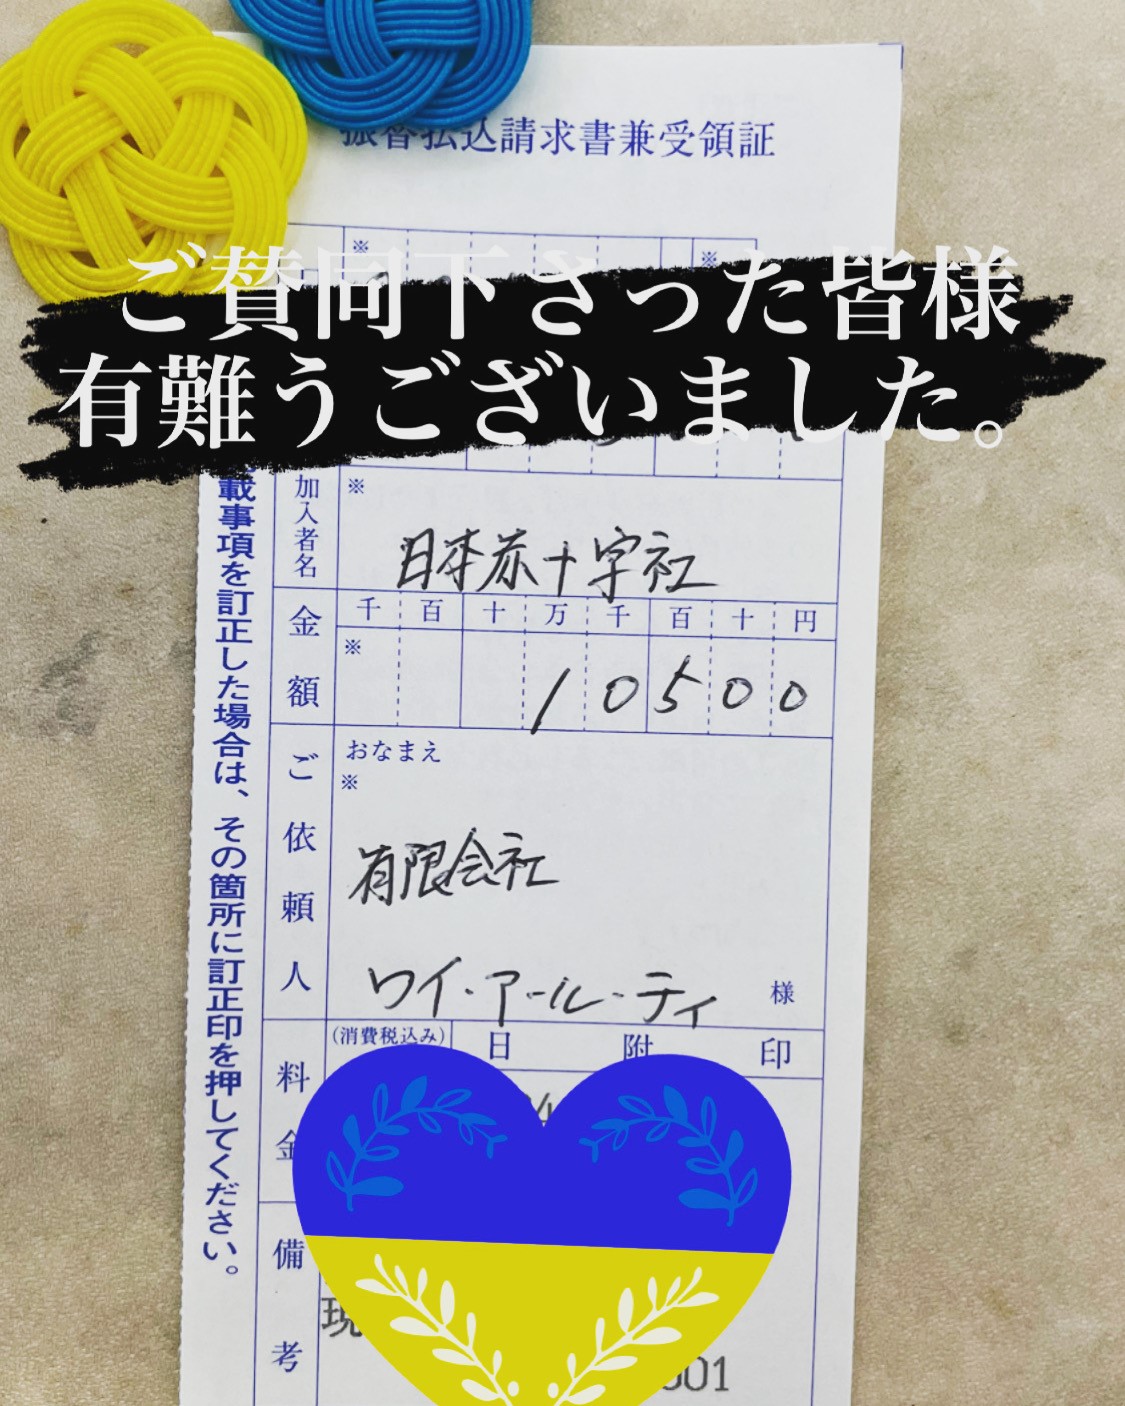 振替払込請求書兼受領証
※
※
ご賛同下さった皆様
有難うございました。
載事項を訂正した場合は、その箇所に訂正印を押してください。
加入者名
※
日本赤十字社
金額
千 百 十 万 千 百 十 円
※
1 0 5 0 0
ご依頼人
おなまえ
※
有限会社
ワイ・アール・ティ
様
料金
(消費税込み)
日 附 印
備考
現
001